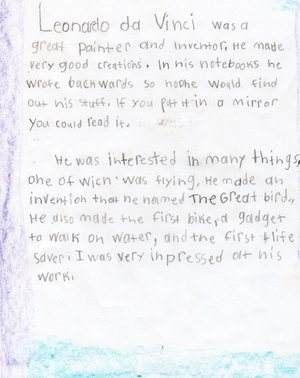 Leonardo da Vinci was a
great painter and inventor. He made
very good creations. In his notebooks he
wrote backwards so noone would find
out his stuff. If you put it in a mirror
you could read it.
He was interested in many things,
one of wich was flying. He made an
invention that he named The Great bird.
He also made the first bike, a gadget
to walk on water, and the first life
saver. I was very inpressed at his
work.